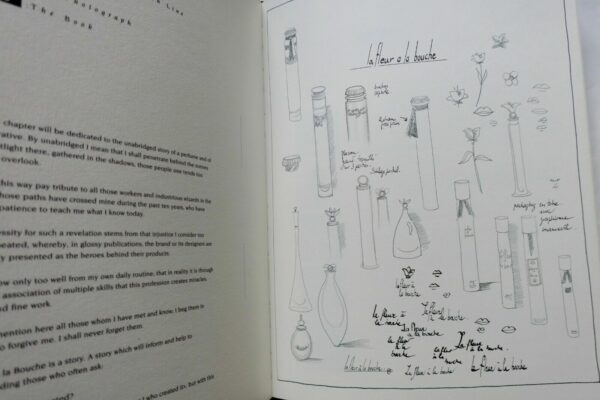 Line
Holograph
The Book
chapter will be dedicated to the unabridged story of a perfume and of
ative. By unabridged I mean that I shall penetrate behind the scenes
light there, gathered in the shadows, those people one tends
overlook.
this way pay tribute to all those workers and industrious wizards in the
hose paths have crossed mine during the past ten years, who have
patience to teach me what I know today.
essity for such a revelation stems from that injustice I consider too
peated, whereby, in glossy publications, the brand or its designers are
y presented as the heroes behind their products.
ow only too well from my own daily routine, that in reality it is through
association of multiple skills that this profession creates miracles,
nd fine work.
mention here all those whom I have met and know; I beg them in
o forgive me. I shall never forget them.
la Bouche is a story. A story which will inform and help to
ding those who often ask:
I created it). But with this
la fleur à la bouche
packaging en tube
la fleur à
la bouche
la fleur à
la bouche
la fleur
à la bouche
la fleur
à la bouche
la fleur
à la
bouche
la fleur
à la bouche
La fleur
à la bouche.
la fleur à la bouche
La fleur à la bouche
la fleur à la bouche